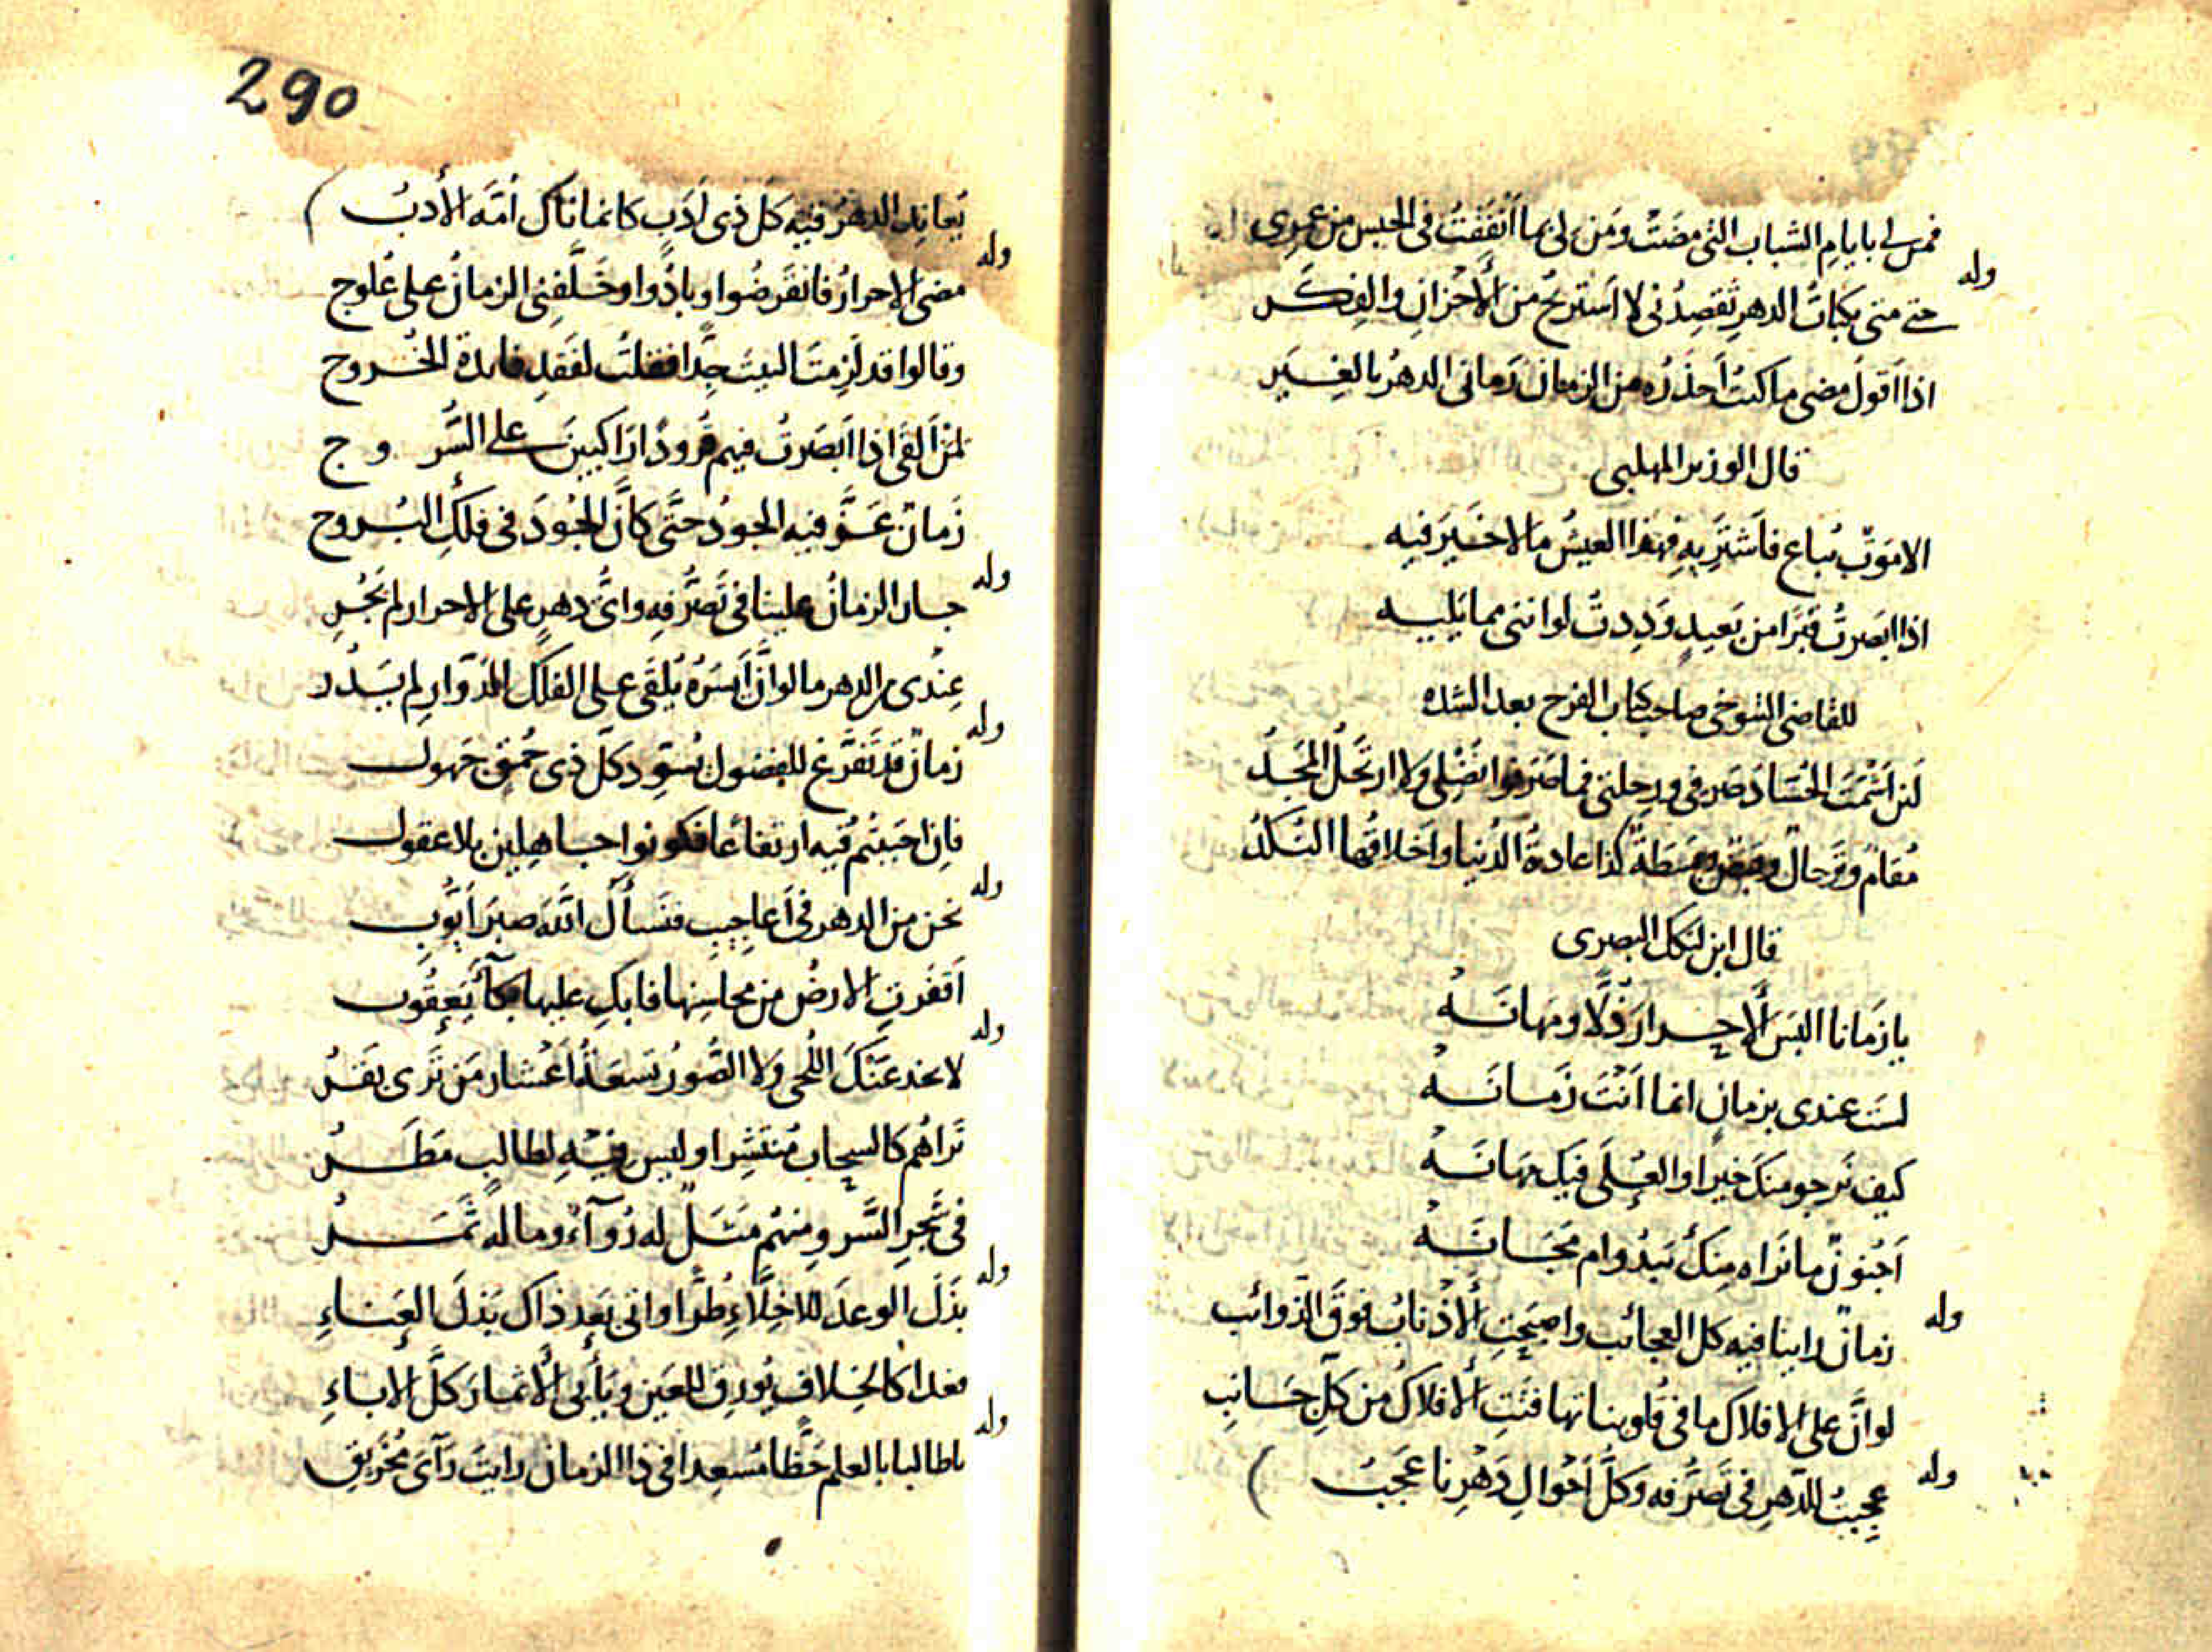 فمن لي بايام الشباب التي مضت ومن لي بما انفقت في الحبس من عمري
وله
حتى متى نكبات الدهر تقصدني لا استريح من الأحزان والفكر
اذا اقول مضى ما كنت احذره من الزمان رماني الدهر بالغير
قال الوزير المهلبى
الا موت يباع فاشتريه فهذا العيش ما لا خير فيه
اذا ابصرت قبرا من بعيد وددت لو انني مما يليه
للقاضي التنوخي صاحب كتاب الفرج بعد الشده
لئن اشمت الحساد صرفي ورحلتي فما صرفوا فضلي ولا ارتحل المجد
مقام وترحال وقبض وبسطة كذا عادة الدنيا واخلاقها النكد
قال ابن لنكك البصرى
يا زمانا البس الأحرار ذلا ومهانه
لست عندى بزمان انما انت زمانه
كيف نرجو منك خيرا والعلى فيك مهانه
اجنون ما نراه منك يبدو ام مجانه
وله
زمان راينا فيه كل العجائب واصبحت الأذناب فوق الذوائب
لو ان على الافلاك ما في قلوبنا تهافتت الأفلاك من كل جانب
وله
عجبت للدهر في تصرفه وكل أحوال دهرنا عجب
290
يعاند الدهر فيه كل ذى ادب كانما ناك امه الأدب
وله
مضى الاحرار فانقرضوا وبادوا وخلفني الزمان على علوج
وقالوا قد لزمت البيت جدا فقلت لفقد فايدة الخروج
لمن القى اذا ابصرت فيهم قرودا راكبين على السروج
زمان عز فيه الجود حتى كان الجود في فلك البروج
وله
جار الزمان علينا في تصرفه واى دهر على الاحرار لم يجر
عندى من الدهر ما لو ان ايسره يلقى على الفلك الدوار لم يدر
وله
زمان قد تفرغ للفضول يسود كل ذى حمق جهول
فان احببتم فيه ارتفاعا فكونوا جاهلين بلا عقول
وله
نحن من الدهر في اعاجيب فنسأل الله صبر ايوب
اقفرت الارض من محاسنها فابك عليها بكآء يعقوب
وله
لا تخدعنك اللحى ولا الصور تسعة أعشار من ترى بقر
تراهم كالسحاب منتشرا وليس فيه لطالب مطر
في شجر السرو منهم مثل له روآء وما له ثمر
وله
بذل الوعد للاخلاء طرا وابى بعد ذاك بذل العناء
فغدا كالخلاف يورق للعين ويأبى الأثمار كل الاباء
وله
يا طالبا بالعلم حظا مسعدا في ذا الزمان رايت رآى